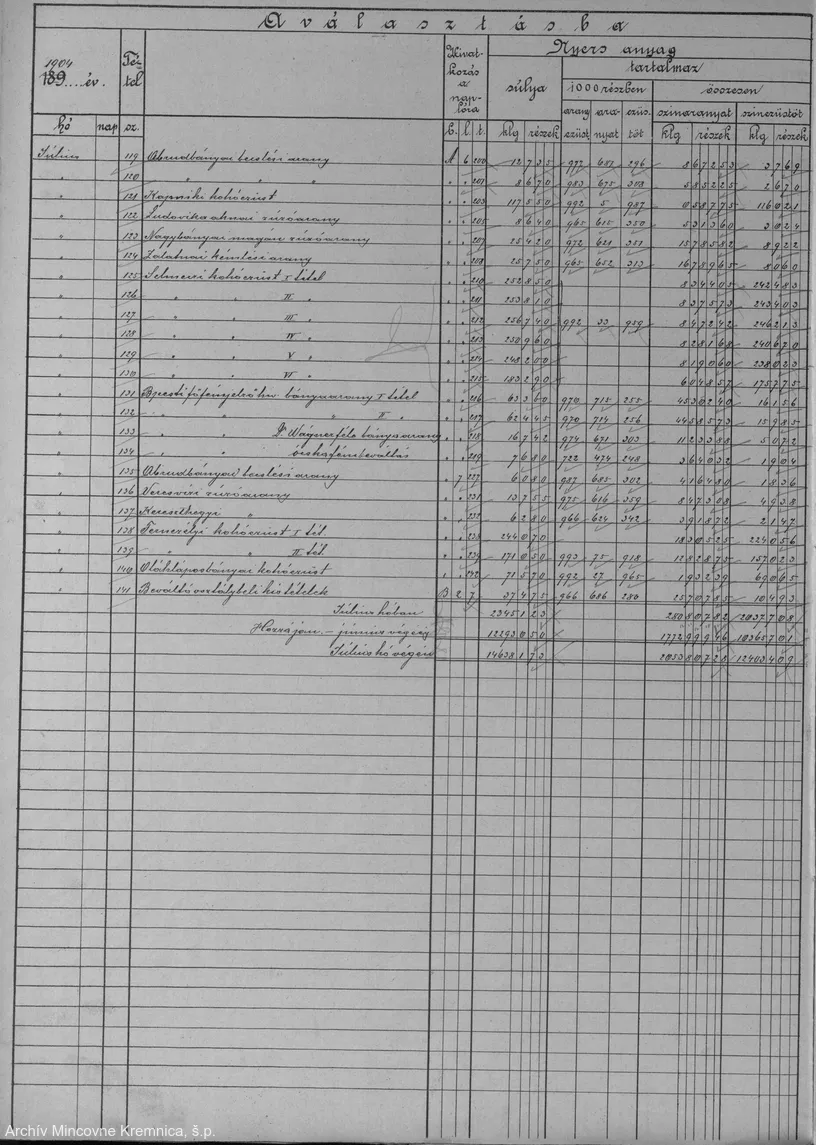 A választásba
1904
189.... év.
Tétel
sz.
Hivatkozás
a
naplóra
Nyers anyag
súlya
tartalmaz
1000 részben
összesen
arany
ezüst
aranyat
ezüstöt
színaranyat
színezüstöt
hó nap
b. l. t.
klg részek
klg részek
klg részek
Július 119 Abrudbányai beolési arany A 6 200 12735 977 681 296 867253 3769
" 120 " " " " " 201 8670 983 675 308 585225 2670
" 121 Kapniki kohóezüst " " 203 117550 992 5 987 058775 116021
" 122 Ludovika aknai zúzóarany " " 205 8640 965 615 350 531360 3024
" 123 Nagybányai magán zúzóarany " " 207 25420 972 621 351 1578582 8922
" 124 Zalatnai kémlési arany " " 208 25750 965 652 313 1678965 8060
" 125 Selmeci kohóezüst I tétel " " 210 252850 834405 242483
" 126 " " II " " " 211 253810 837573 243403
" 127 " " III " " " 212 256740 992 33 959 847242 246213
" 128 " " IV " " " 213 250960 828168 240670
" 129 " " V " " " 214 248200 819060 238023
" 130 " " VI " " " 215 183290 604857 175775
" 131 Brezsti főfényelőhiv bányaarany I tétel " " 216 63360 970 715 255 4530240 16156
" 132 " " " II " " " 217 62445 970 714 256 4458573 15985
" 133 " " Dr Wagnerféle bányaarany " " 218 16742 974 671 303 1123388 5072
" 134 " " " " 219 7680 722 474 248 364032 1904
" 135 Abrudbányai beolési arany " 7 227 6080 987 685 302 416480 1836
" 136 Veresvízi zúzóarany " " 231 13755 975 616 359 847308 4938
" 137 Kereszthegyi " " " 232 6280 966 624 342 391872 2147
" 138 Fernezelyi kohóezüst I tét. " " 238 244070 1830525 224056
" 139 " " II tét. " " 239 171050 993 75 918 1282875 157023
" 140 Oláhláposbányai kohóezüst " " 242 71570 992 27 965 193239 69065
" 141 Beváltó osztálybeli kis tételek B 2 7 37475 966 686 280 2570785 10493
Július hóban 2345123 28080782 2037708
Hozzá jan. – június végéig 12293050 177299946 10365701
Július hó végéig 14638173 205380728 12403409
Archív Mincovne Kremnica, š.p.